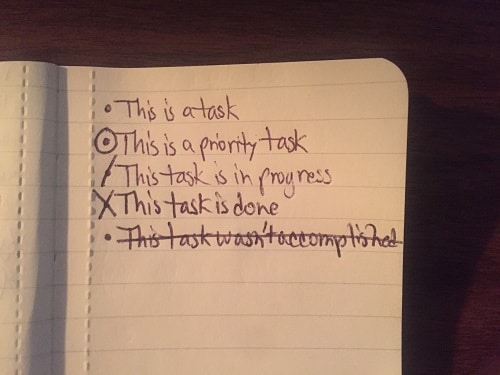 • This is a task
⊙ This is a priority task
/ This task is in progress
X This task is done
• This task wasn't accomplished